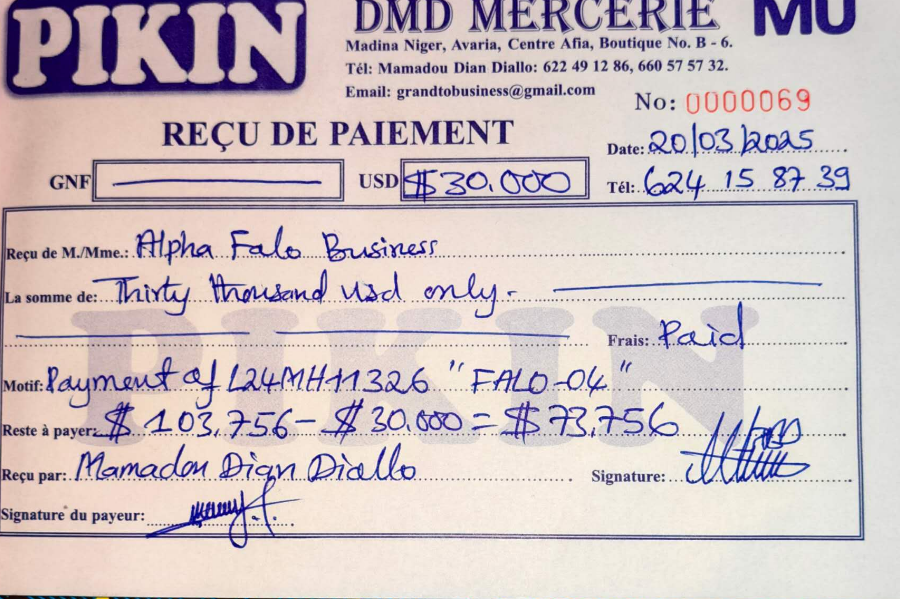 PIKIN
DMD MERCERIE
MU
Madina Niger, Avaria, Centre Afia, Boutique No. B - 6.
Tél: Mamadou Dian Diallo: 622 49 12 86, 660 57 57 32.
Email: grandtobusiness@gmail.com
No: 0000069
REÇU DE PAIEMENT
Date: 20/03/2025
GNF
USD $30.000
Tél: 624 15 87 39
Reçu de M./Mme.: Alpha Falo Business
La somme de: Thirty thousand usd only.
Frais: Paid
PIKIN
Motif: Payment of L24MH11326 "FALO-04"
Reste à payer: $103,756 - $30.000 = $73,756
Reçu par: Mamadou Dian Diallo
Signature:
Signature du payeur: